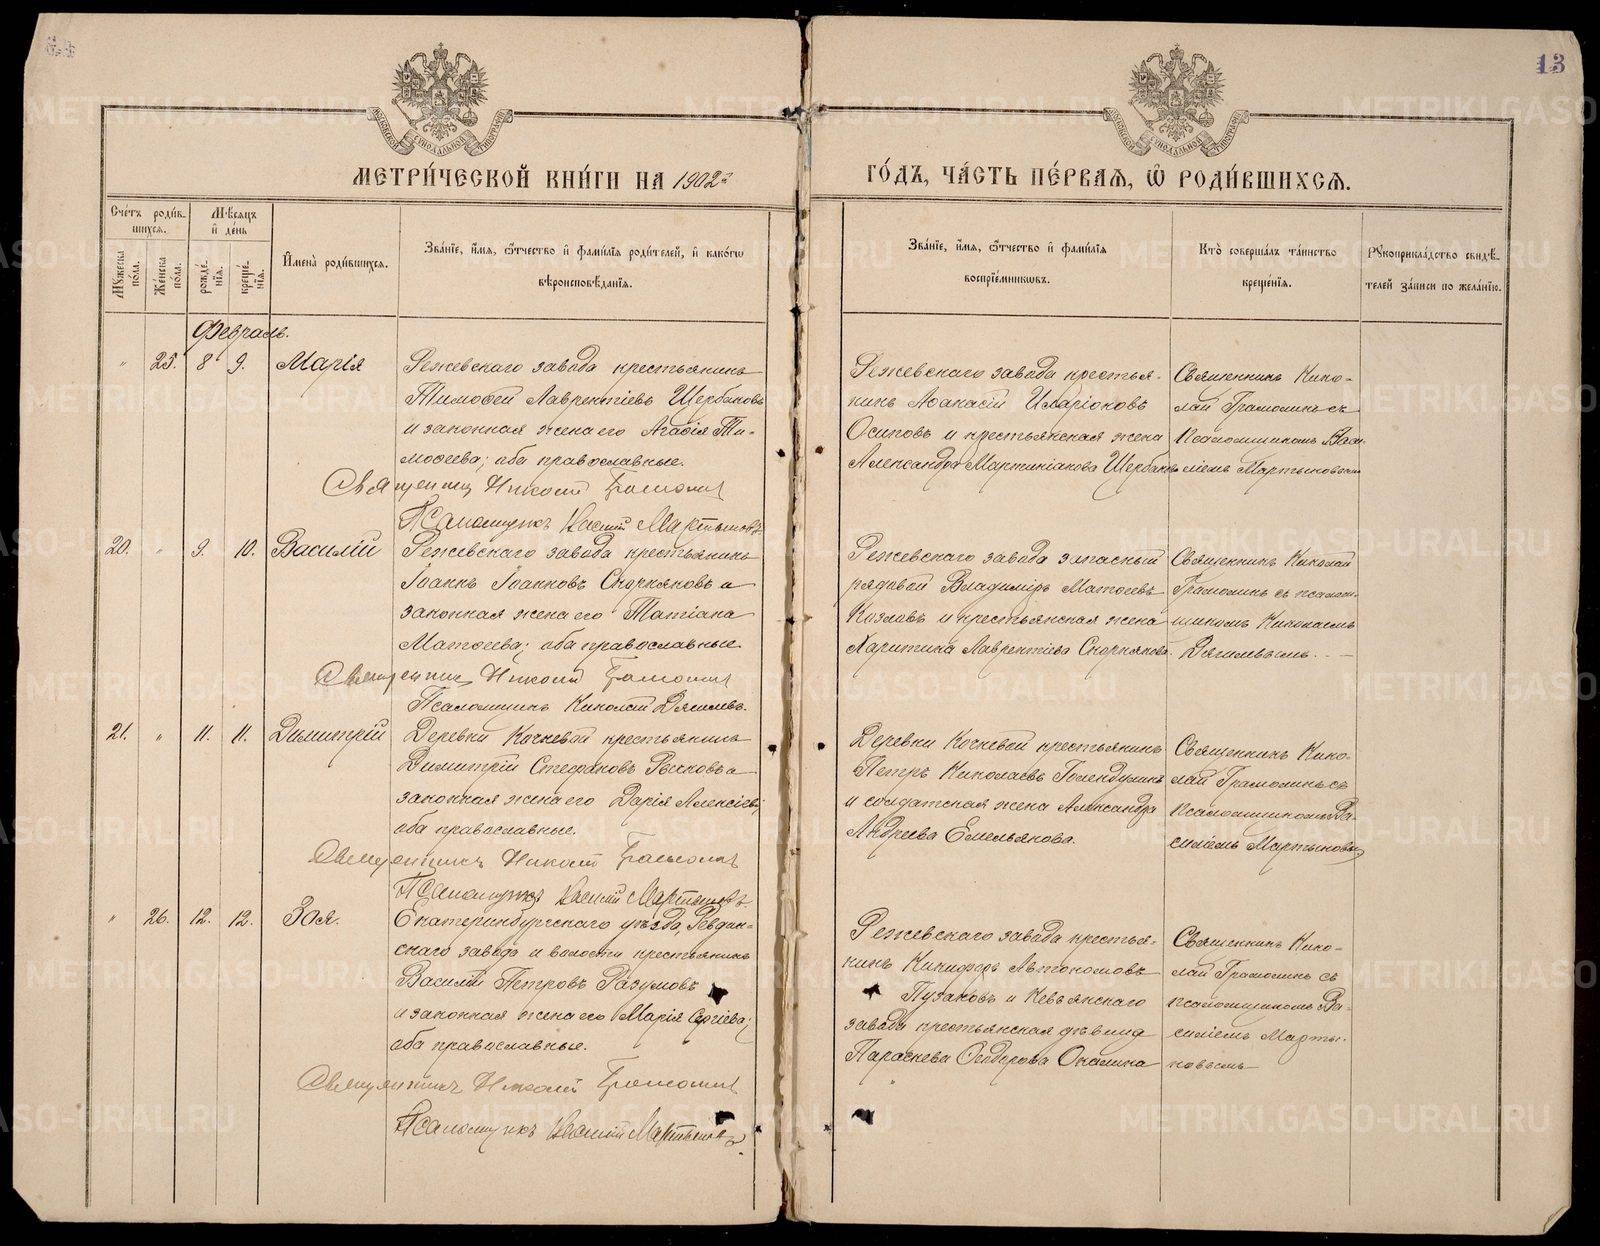 13
МЕТРИ́ЧЕСКОЙ КНИ́ГИ НА 1902й
ГО́ДЪ, ЧА́СТЬ ПЕ́РВАЯ, Ѽ РОДИ́ВШИХСЯ.
Сче́тъ роди́в-
шихся.
Мѣ́сяцъ
и҆ де́нь
Мꙋ́жеска по́ла.
Же́нска по́ла.
рожде́-
нїѧ.
креще́-
нїѧ.
И҆мена̀ роди́вшихсѧ.
Зва́нїе, и҆́мѧ, ѻ҆́тчество и҆ фами́лїѧ роди́телей, и҆ како́гѡ
вѣроисповѣ́данїѧ.
Зва́нїе, и҆́мѧ, ѻ҆́тчество и҆ фами́лїѧ
воспрїе́мникѡвъ.
Кто̀ соверша́лъ та́инство
креще́нїѧ.
Рꙋкоприкла́дство свидѣ́-
телей за́писи по жела́нїю.
Февраль.
" 25. 8 9. Марія
Режевскаго завода крестьянинъ
Тимофей Лаврентіевъ Щербаковъ
и законная жена его Агафія Ти-
мофеева; оба православные.
Священникъ Николай Грамолинъ
Псаломщикъ Василій Мартыновъ
Режевскаго завода крестья-
нинъ Афанасій Иларіоновъ
Осиповъ и крестьянская жена
Александра Мартиніанова Щербакова
Священникъ Нико-
лай Грамолинъ съ
псаломщикомъ Васи-
ліемъ Мартыновымъ
20. " 9. 10. Василій
Режевскаго завода крестьянинъ
Іоаннъ Іоанновъ Скорняковъ и
законная жена его Татіана
Матѳеева; оба православные
Священникъ Николай Грамолинъ
Псаломщикъ Николай Дягилевъ.
Режевскаго завода запасный
рядовой Владиміръ Матѳеевъ
Козловъ и крестьянская жена
Харитина Лаврентіева Скорнякова.
Священникъ Николай
Грамолинъ съ псалом-
щикомъ Николаемъ
Дягилевымъ.
21. " 11. 11. Димитрій
Деревни Кочневой крестьянинъ
Димитрій Стефановъ Рычковъ и
законная жена его Дарія Алексіева;
оба православные.
Священникъ Николай Грамолинъ
Псаломщикъ Василій Мартыновъ.
Деревни Кочневой крестьянинъ
Петръ Николаевъ Голендухинъ
и солдатская жена Александра
Андреева Емельянова.
Священникъ Нико-
лай Грамолинъ съ
псаломщикомъ Ва-
силіемъ Мартыновымъ
" 26. 12. 12. Зоя.
Екатеринбургскаго уѣзда, Ревдин-
скаго завода и волости крестьянинъ
Василій Петровъ Разумовъ
и законная жена его Марія Сергіева;
оба православные.
Священникъ Николай Грамолинъ
Псаломщикъ Василій Мартыновъ.
Режевскаго завода крестья-
нинъ Никифоръ Автономовъ
Пузановъ и Невьянскаго
завода крестьянская дѣвица
Параскева Ѳеодорова
Священникъ Нико-
лай Грамолинъ съ
псаломщикомъ Ва-
силіемъ Марты-
новымъ
METRIKI.GASO-URAL.RU